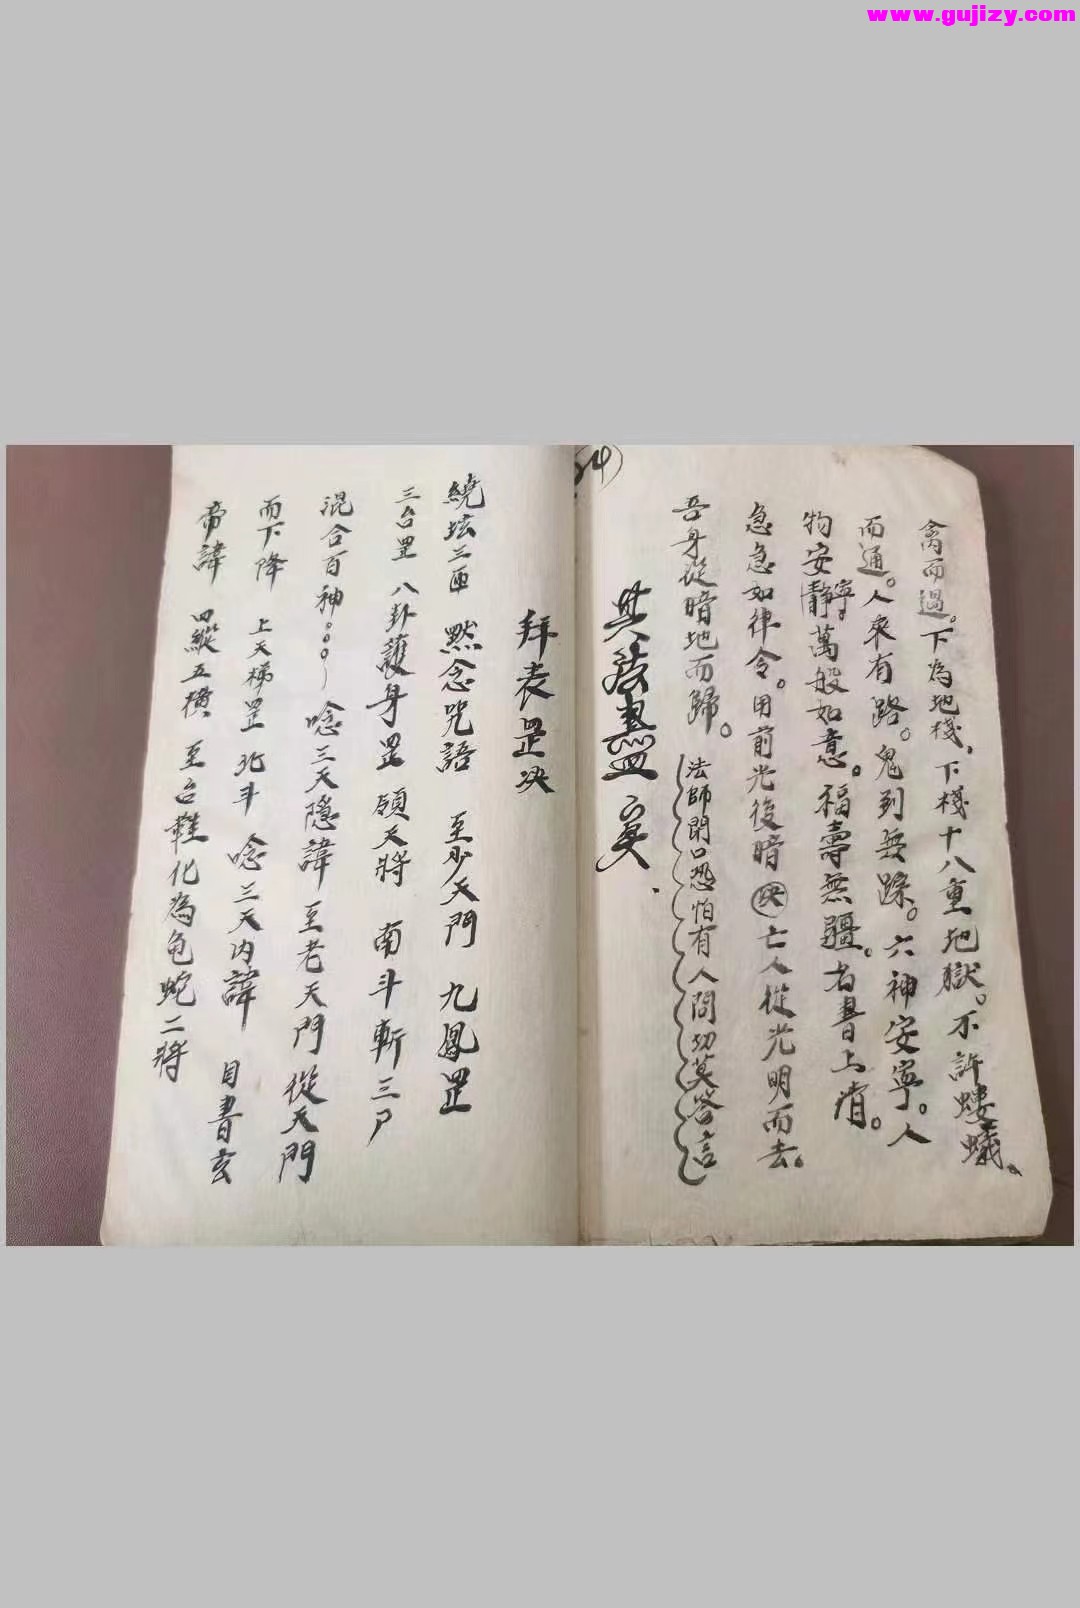 www.gujizy.com
禽而過。下為地棧，下棧十八重地獄。不許螻蟻。
而通。人來有路。鬼到無踪。六神安寧。人
物安靜寧。萬般如意。福壽無疆。右書上消。
急急如律令。用前光後暗決亡人從光明而去。
吾身從暗地而歸。法師閉口恐怕有人問切莫答言
其法盡矣
拜表罡决
繞坛三匝 默念咒語 至少天門 九鳳罡
三台罡 八卦護身罡 領天將 南斗斬三尸
混合百神。。。 唸三天隱諱 至老天門 從天門
而下降 上天梯罡 北斗 唸三天内諱 目書玄
帝諱 四縱五橫 至台鞋化為龟蛇二將